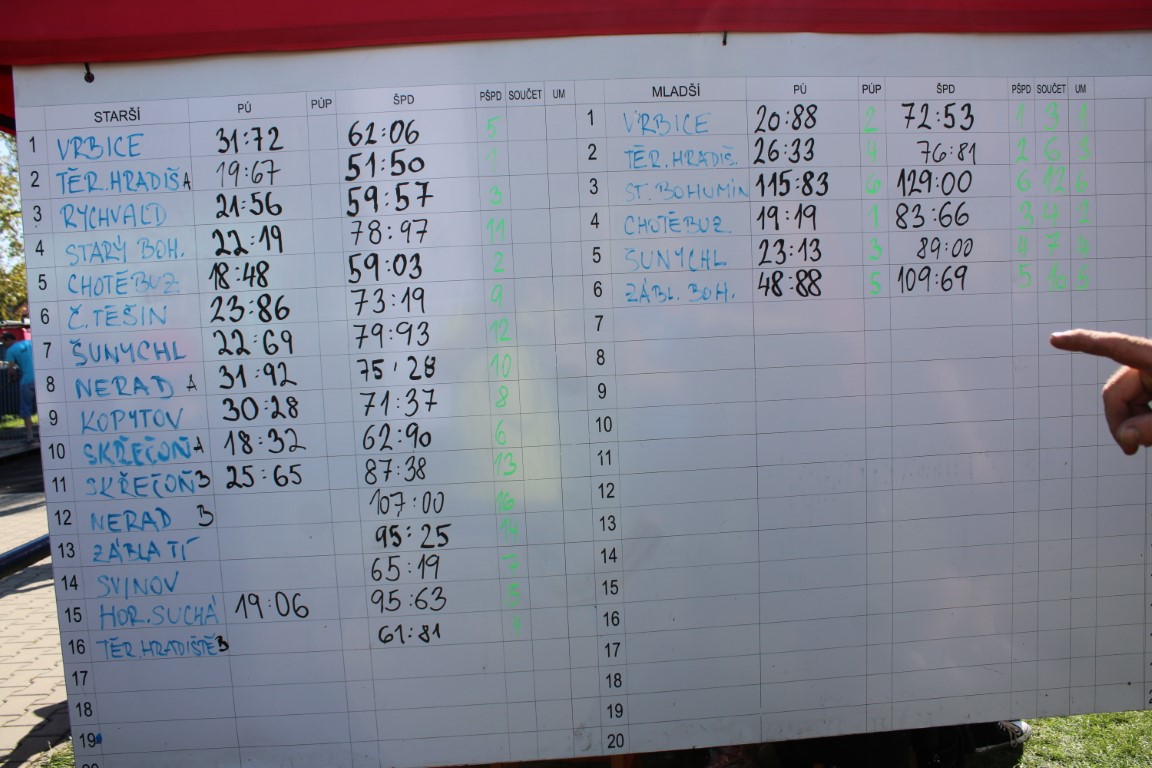 STARŠÍ PÚ PÚP ŠPD PŠPD SOUČET UM
1 VRBICE 31:72 62:06 5
2 TĚR.HRADIŠ A 19:67 51:50
3 RYCHVALD 21:56 59:57 3
4 STARÝ BOH. 22:19 78:97 11
5 CHOTĚBUZ 18:48 59:03 2
6 Č.TĚŠIN 23:86 73:19 9
7 ŠUNYCHL 22:69 79:93 12
8 NERAD A 31:92 75:28 10
9 KOPYTOV 30:28 71:37 8
10 SKŘEČOŇ A 18:32 62:90 6
11 SKŘEČOŇ B 25:65 87:38 13
12 NERAD B 107:00 16
13 ZÁBLATÍ 95:25 14
14 SVINOV 65:19 7
15 HOR.SUCHÁ 19:06 95:63
16 TĚR.HRADIŠTĚ B 61:81
17
18
19
MLADŠÍ PÚ PÚP ŠPD PŠPD SOUČET UM
1 VRBICE 20:88 2 72:53 1 3 1
2 TĚR.HRADIŠ. 26:33 4 76:81 2 6 3
3 ST.BOHUMÍN 115:83 6 129:00 6 12 6
4 CHOTĚBUZ 19:19 1 83:66 3 4 2
5 ŠUNYCHL 23:13 3 89:00 4 7 4
6 ZÁBL.BOH. 48:88 5 109:69 5 10
7
8
9
10
11
12
13
14
15
16
17
18
19
20